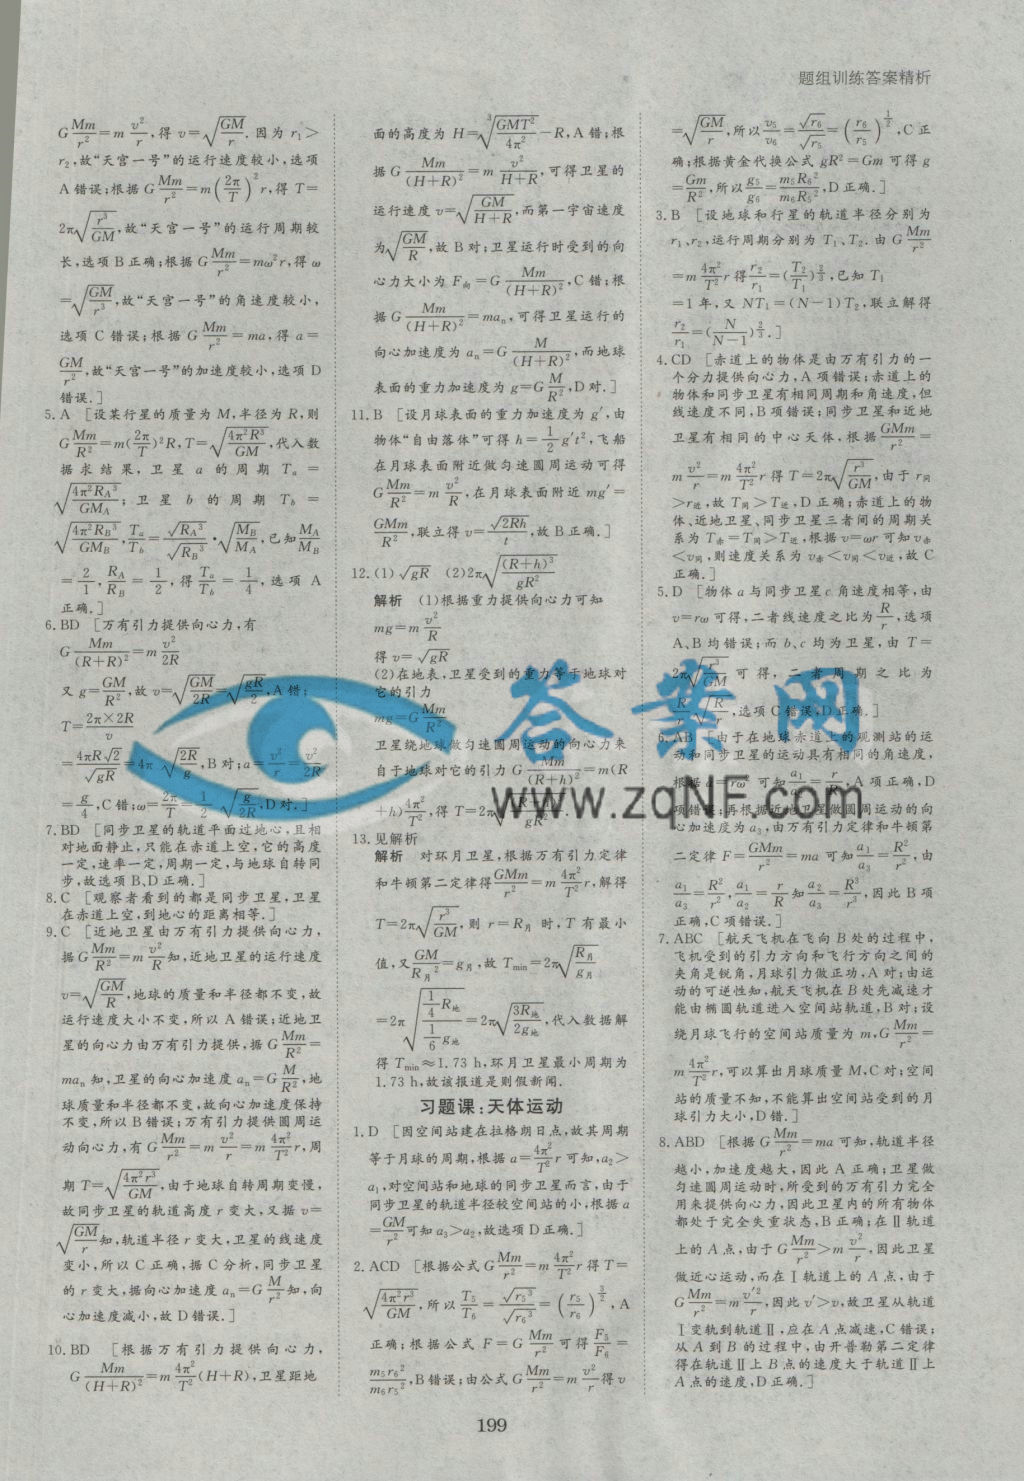 题组训练答案精析
G\frac{Mm}{r^2}=m\frac{v^2}{r},得 v=\sqrt{\frac{GM}{r}}.因为 r₁>
r₂,故“天宫一号”的运行速度较小,选项
A 错误;根据 G\frac{Mm}{r^2}=m(\frac{2π}{T})^2 r,得 T=
2π\sqrt{\frac{r^3}{GM}},故“天宫一号”的运行周期较
长,选项 B 正确;根据 G\frac{Mm}{r^2}=mω²r,得 ω
=\sqrt{\frac{GM}{r^3}},故“天宫一号”的角速度较小,
选项 C 错误;根据 G\frac{Mm}{r^2}=ma,得 a=
\frac{GM}{r^2},故“天宫一号”的加速度较小,选项 D
错误.]
5.A [设某行星的质量为 M,半径为 R,则
G\frac{Mm}{R^2}=m(\frac{2π}{T})²R,T=\sqrt{\frac{4π²R³}{GM}},代入数
据求结果,卫星 a 的周期 T_a=
\sqrt{\frac{4π²R_A³}{GM_A}};卫星 b 的周期 T_b=
\sqrt{\frac{4π²R_B³}{GM_B}},\frac{T_a}{T_b}=\frac{\sqrt{R_A³}}{\sqrt{R_B³}}·\sqrt{\frac{M_B}{M_A}},已知\frac{M_A}{M_B}
=\frac{2}{1},\frac{R_A}{R_B}=\frac{1}{2},得\frac{T_a}{T_b}=\frac{1}{4},选项 A
正确.]
6.BD [万有引力提供向心力,有
G\frac{Mm}{(R+R)^2}=m\frac{v^2}{2R}
又 g=\frac{GM}{R^2},故 v=\sqrt{\frac{GM}{2R}}=\sqrt{\frac{gR}{2}},A 错;
T=\frac{2π×2R}{v}
=\frac{4πR\sqrt{2}}{\sqrt{gR}}=4π\sqrt{\frac{2R}{g}},B 对;a=\frac{v^2}{r}=\frac{v^2}{2R}
=\frac{g}{4},C 错;ω=\frac{2π}{T}=\frac{1}{2}\sqrt{\frac{g}{2R}},D 对.]
7.BD [同步卫星的轨道平面过地心,且相
对地面静止,只能在赤道上空,它的高度
一定,速率一定,周期一定,与地球自转同
步,故选项 B、D 正确.]
8.C [观察者看到的都是同步卫星,卫星
在赤道上空,到地心的距离相等.]
9.C [近地卫星由万有引力提供向心力,
据 G\frac{Mm}{R^2}=m\frac{v^2}{R}知,近地卫星的运行速度
v=\sqrt{\frac{GM}{R}},地球的质量和半径都不变,故
运行速度大小不变,所以 A 错误;近地卫
星的向心力由万有引力提供,据 G\frac{Mm}{R^2}=
ma_n 知,卫星的向心加速度 a_n=G\frac{M}{R^2},地
球质量和半径都不变,故向心加速度保持
不变,所以 B 错误;万有引力提供圆周运
动向心力,有 G\frac{Mm}{r^2}=m\frac{v^2}{r}=m\frac{4π²}{T²}r,周
期 T=\sqrt{\frac{4π²r³}{GM}},由于地球自转周期变慢,
故同步卫星的轨道高度 r 变大,又据 v=
\sqrt{\frac{GM}{r}}知,轨道半径 r 变大,卫星的线速度
变小,所以 C 正确,据 C 分析,同步卫星
的 r 变大,据向心加速度 a_n=G\frac{M}{r^2}知,向
心加速度减小,故 D 错误.]
10.BD [根据万有引力提供向心力,
G\frac{Mm}{(H+R)^2}=m\frac{4π²}{T²}(H+R),卫星距地
面的高度为 H=\sqrt[3]{\frac{GMT²}{4π²}}-R,A 错;根
据 G\frac{Mm}{(H+R)^2}=m\frac{v^2}{H+R},可得卫星的
运行速度 v=\sqrt{\frac{GM}{H+R}},而第一宇宙速度
为\sqrt{\frac{GM}{R}},故 B 对;卫星运行时受到的向
心力大小为 F向=G\frac{Mm}{(H+R)^2},C 错;根
据 G\frac{Mm}{(H+R)^2}=ma_n,可得卫星运行的
向心加速度为 a_n=G\frac{M}{(H+R)^2},而地球
表面的重力加速度为 g=G\frac{M}{R^2},D 对.]
11.B [设月球表面的重力加速度为 g′,由
物体“自由落体”可得 h=\frac{1}{2}g′t²,飞船
在月球表面附近做匀速圆周运动可得
G\frac{Mm}{R^2}=m\frac{v^2}{R},在月球表面附近 mg′=
\frac{GMm}{R^2},联立得 v=\frac{\sqrt{2Rh}}{t},故 B 正确.]
12.(1)\sqrt{gR} (2)2π\sqrt{\frac{(R+h)^3}{gR^2}}
解析 (1)根据重力提供向心力可知
mg=m\frac{v^2}{R}
得 v=\sqrt{gR}
(2)在地表,卫星受到的重力等于地球对
它的引力
mg=G\frac{Mm}{R^2}
卫星绕地球做匀速圆周运动的向心力来
自于地球对它的引力 G\frac{Mm}{(R+h)^2}=m(R
+h)\frac{4π²}{T²},得 T=2π\sqrt{\frac{(R+h)^3}{gR^2}}
13.见解析
解析 对环月卫星,根据万有引力定律
和牛顿第二定律得\frac{GMm}{r^2}=m\frac{4π²}{T²}r,解得
T=2π\sqrt{\frac{r^3}{GM}},则 r=R月 时,T 有最小
值,又\frac{GM}{R月²}=g月,故 T_{min}=2π\sqrt{\frac{R月}{g月}}
=2π\sqrt{\frac{\frac{1}{4}R地}{\frac{1}{6}g地}}=2π\sqrt{\frac{3R地}{2g地}},代入数据解
得 T_{min}≈1.73 h,环月卫星最小周期为
1.73 h,故该报道是则假新闻.
习题课:天体运动
1.D [因空间站建在拉格朗日点,故其周期
等于月球的周期,根据 a=\frac{4π²}{T²}r 可知,a₂>
a₁,对空间站和地球的同步卫星而言,由于
同步卫星的轨道半径较空间站的小,根据 a
=\frac{GM}{r^2}可知 a₃>a₂,故选项 D 正确.]
2.ACD [根据公式 G\frac{Mm}{r^2}=m\frac{4π²}{T²}r 得 T=
\sqrt{\frac{4π²r³}{GM}},所以\frac{T₅}{T₆}=\frac{\sqrt{r₅³}}{\sqrt{r₆³}}=(\frac{r₅}{r₆})^{\frac{3}{2}},A
正确;根据公式 F=G\frac{Mm}{r^2}可得\frac{F₅}{F₆}=
\frac{m₅r₆²}{m₆r₅²},B 错误;由公式 G\frac{Mm}{r^2}=m\frac{v^2}{r}得 v
=\sqrt{\frac{GM}{r}},所以\frac{v₅}{v₆}=\frac{\sqrt{r₆}}{\sqrt{r₅}}=(\frac{r₆}{r₅})^{\frac{1}{2}},C 正
确;根据黄金代换公式 gR²=Gm 可得 g
=\frac{Gm}{R^2},所以\frac{g₅}{g₆}=\frac{m₅R₆²}{m₆R₅²},D 正确.]
3.B [设地球和行星的轨道半径分别为
r₁、r₂,运行周期分别为 T₁、T₂.由 G\frac{Mm}{r^2}
=m\frac{4π²}{T²}r 得\frac{r₂}{r₁}=(\frac{T₂}{T₁})^{\frac{2}{3}},已知 T₁
=1 年,又 NT₁=(N-1)T₂,联立解得
\frac{r₂}{r₁}=(\frac{N}{N-1})^{\frac{2}{3}}.]
4.CD [赤道上的物体是由万有引力的一
个分力提供向心力,A 项错误;赤道上的
物体和同步卫星有相同周期和角速度,但
线速度不同,B 项错误;同步卫星和近地
卫星有相同的中心天体,根据\frac{GMm}{r^2}=
m\frac{v^2}{r}=m\frac{4π²}{T²}r 得 T=2π\sqrt{\frac{r^3}{GM}},由于 r同
>r近,故 T同>T近,D 正确;赤道上的物
体、近地卫星、同步卫星三者间的周期关
系为 T赤=T同>T近,根据 v=ωr 可知 v赤
<v同,则速度关系为 v赤<v同<v近,故 C
正确.]
5.D [物体 a 与同步卫星 c 角速度相等,由
v=rω 可得,二者线速度之比为\frac{R}{r},选项
A、B 均错误;而 b、c 均为卫星,由 T=
2π\sqrt{\frac{r^3}{GM}}可得,二者周期之比为
\frac{R}{r}\sqrt{\frac{R}{r}},选项 C 错误,D 正确.]
6.AB [由于在地球赤道上的观测站的运
动和同步卫星的运动具有相同的角速度,
根据 a=rω² 可知\frac{a₁}{a₂}=\frac{r}{R},A 项正确,D
项错误;再根据近地卫星做圆周运动的向
心加速度为 a₃,由万有引力定律和牛顿第
二定律 F=\frac{GMm}{r^2}=ma 可知\frac{a₁}{a₃}=\frac{R²}{r²},由
\frac{a₁}{a₃}=\frac{R²}{r²},\frac{a₂}{a₁}=\frac{r}{R}知\frac{a₂}{a₃}=\frac{R³}{r³},因此 B 项
正确,C 项错误.]
7.ABC [航天飞机在飞向 B 处的过程中,
飞机受到的引力方向和飞行方向之间的
夹角是锐角,月球引力做正功,A 对;由运
动的可逆性知,航天飞机在 B 处先减速才
能由椭圆轨道进入空间站轨道,B 对;设
绕月球飞行的空间站质量为 m,G\frac{Mm}{r^2}=
m\frac{4π²}{T²}r,可以算出月球质量 M,C 对;空间
站的质量不知,不能算出空间站受到的月
球引力大小,D 错.]
8.ABD [根据 G\frac{Mm}{r^2}=ma 可知,轨道半径
越小,加速度越大,因此 A 正确;卫星做
匀速圆周运动时,所受到的万有引力完全
用来提供向心力,因此卫星内的所有物体
都处于完全失重状态,B 正确;在Ⅱ轨道
上的 A 点,由于 G\frac{Mm}{r^2}>m\frac{v^2}{r},因此卫星
做近心运动,而在Ⅰ轨道上的 A 点,由于
G\frac{Mm}{r^2}=m\frac{v′^2}{r},因此 v′>v,故卫星从轨道
Ⅰ变轨到轨道Ⅱ,应在 A 点减速,C 错误;
从 A 到 B 的过程中,由开普勒第二定律
得在轨道Ⅱ上 B 点的速度大于轨道Ⅱ上
A 点的速度,D 正确.]
答案网
www.zqNF.com
199